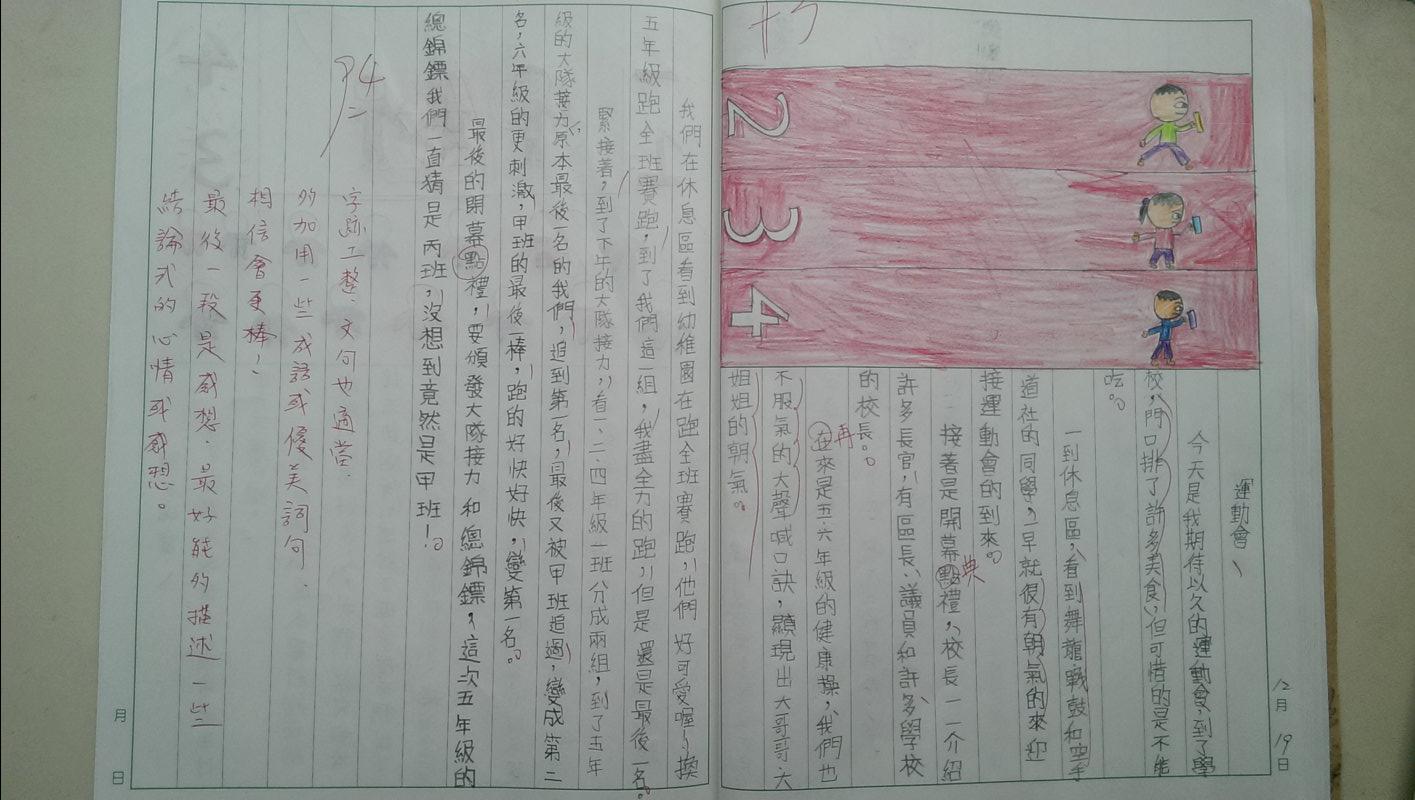 12月19日
運動會
今天是我期待以久的運動會，到了學
校，門口排了許多美食，但可惜的是不能
吃。
一到休息區，看到舞龍、戰鼓和空手
道社的同學，一早就很有朝氣的來迎
接運動會的到來。
接著是開幕點禮，校長一一介紹
典
許多長官，有區長、議員和許多學校
的校長。
在來是五、六年級的健康操，我們也
再
不服氣的大聲喊口訣，顯現出大哥哥大
姐姐的朝氣。
2
3
4
我們在休息區看到幼稚園在跑全班賽跑，他們好可愛喔～換
五年級跑全班賽跑，到了我們這一組，我盡全力的跑，但是還是最後一名。
緊接著，到了下午的大隊接力，看一、二、四年級一班分成兩組，到了五年
級的大隊接力原本最後一名的我們，追到第一名，最後又被甲班追過，變成第二
名，六年級的更刺激，甲班的最後一棒，跑的好快好快，變第一名。
最後的閉幕點禮，要頒發大隊接力和總錦鏢，這次五年級的
總錦鏢我們一直猜是丙班，沒想到竟然是甲班！
94
字跡工整、文句也適當、
的加用一些成語或優美詞句、
相信會更棒！
最後一段是感想、最好能的描述一些
結論式的心情或感想。
月 日